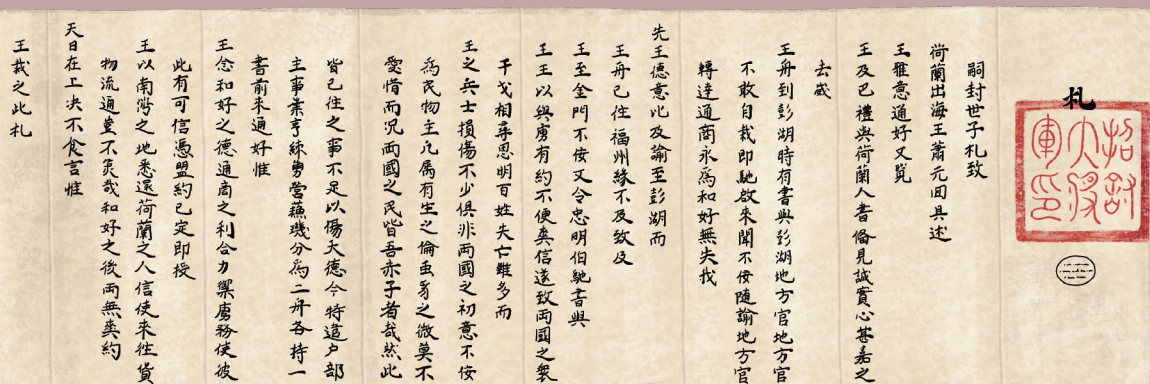 札
招討大將軍印
嗣封世子札致
荷蘭出海王蕭元回具述
王雅意通好又覧
王及巴禮與荷蘭人書俻見誠實心甚嘉之
去歲
王舟到彭湖時有書與彭湖地方官地方官
不敢自裁即馳啟來聞不佞随諭地方官
轉達通商永為和好無失我
先王德意比及諭至彭湖而
王舟已住福州緣不及致及
王至金門不佞又令忠明伯馳書與
王王以與虜有約不便爽信遂致両國之衆
干戈相尋思明百姓失亡雖多而
王之兵士損傷不少俱非両國之初意不佞
為民物主凡属有生之倫虫豸之微莫不
愛惜而况両國之民皆吾赤子者哉然此
皆已住之事不足以傷大德今特遣户部
主事葉亨練勇營蘓璣分為二舟各持一
書前来通好惟
王念和好之德通商之利合力禦虜務使彼
此有可信憑盟約已定即授
王以南湾之地悉還荷蘭之人信使来往貨
物流通豈不羙哉和好之後両無爽約
天日在上决不食言惟
王裁之此札